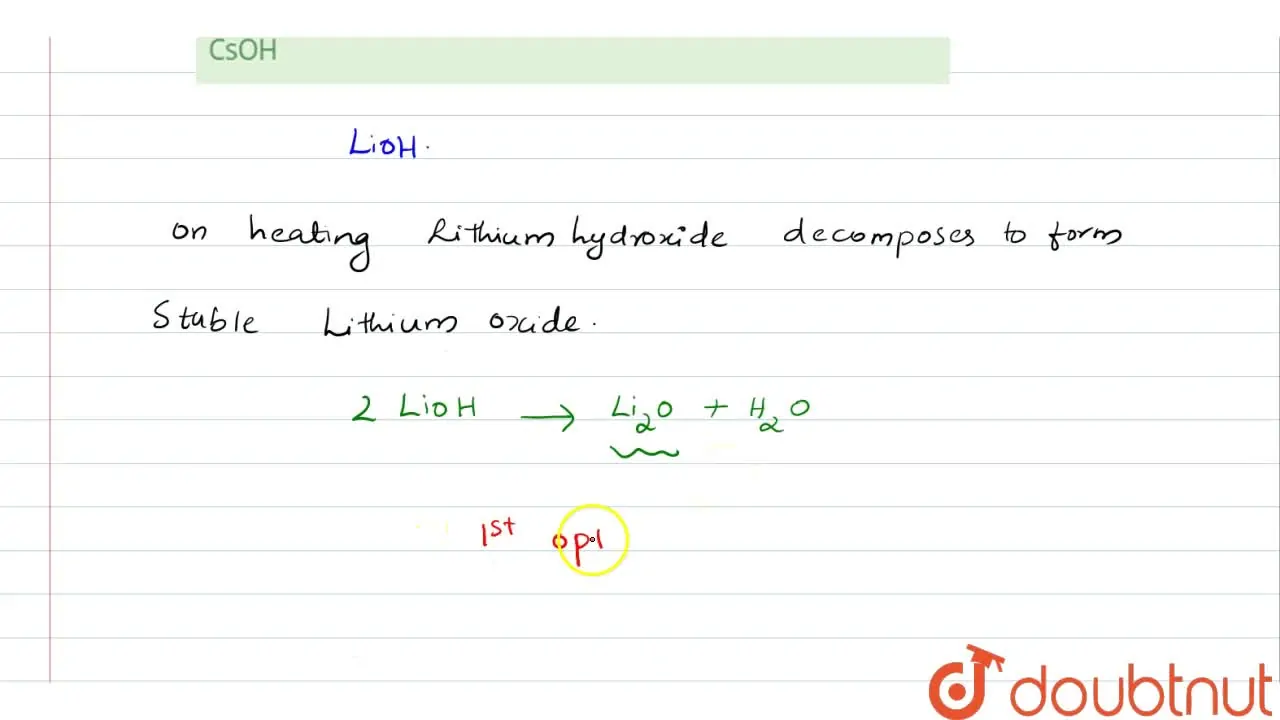 CsOH
LiOH.
on heating Lithium hydroxide decomposes to form
Stable Lithium oxide.
2 LiOH → Li₂O + H₂O
1st opl
doubtnut